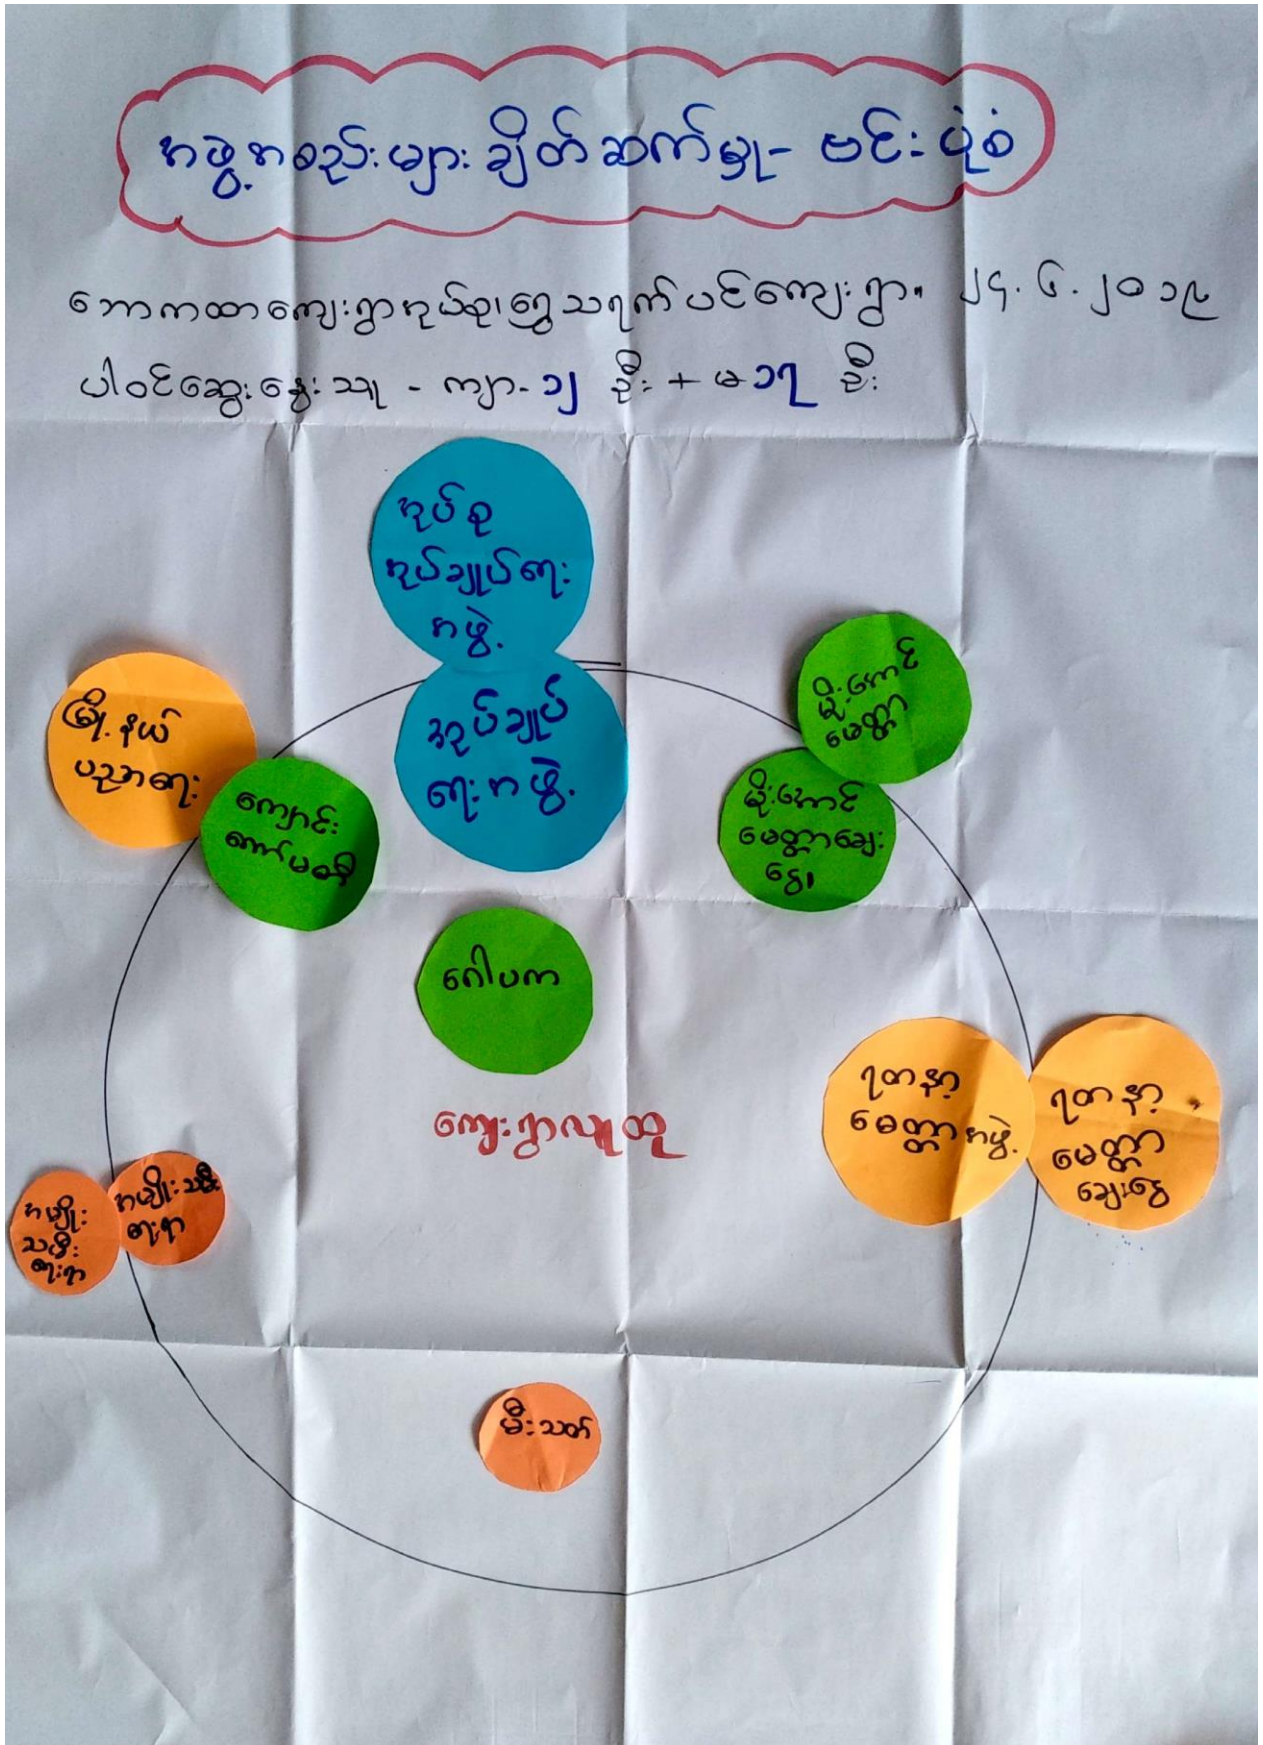 အဖွဲ့အစည်းများ ချိတ်ဆက်မှု - ဗင်းပုံစံ
ဘောကထာကျေးရွာအုပ်စု၊ ရွှေသရက်ပင်ကျေးရွာ။ ၂၄.၆.၂၀၁၉
ပါဝင်ဆွေးနွေးသူ - ကျာ-၁၂ ဦး + မ ၁၇ ဦး
အုပ်စု
အုပ်ချုပ်ရေး
အဖွဲ့
အုပ်ချုပ်
ရေးအဖွဲ့
မြို့နယ်
ပညာရေး
ကျောင်း
ကော်မတီ
မိုးကောင်
မေတ္တာ
မိုးကောင်
မေတ္တာချေး
ငွေ
ဂေါပက
ကျေးရွာလူထု
ရတနာ့
မေတ္တာအဖွဲ့
ရတနာ့
မေတ္တာ
ချေးငွေ
အမျိုး
သမီး
ရေးရာ
အမျိုးသမီး
ရေးရာ
မီးသတ်